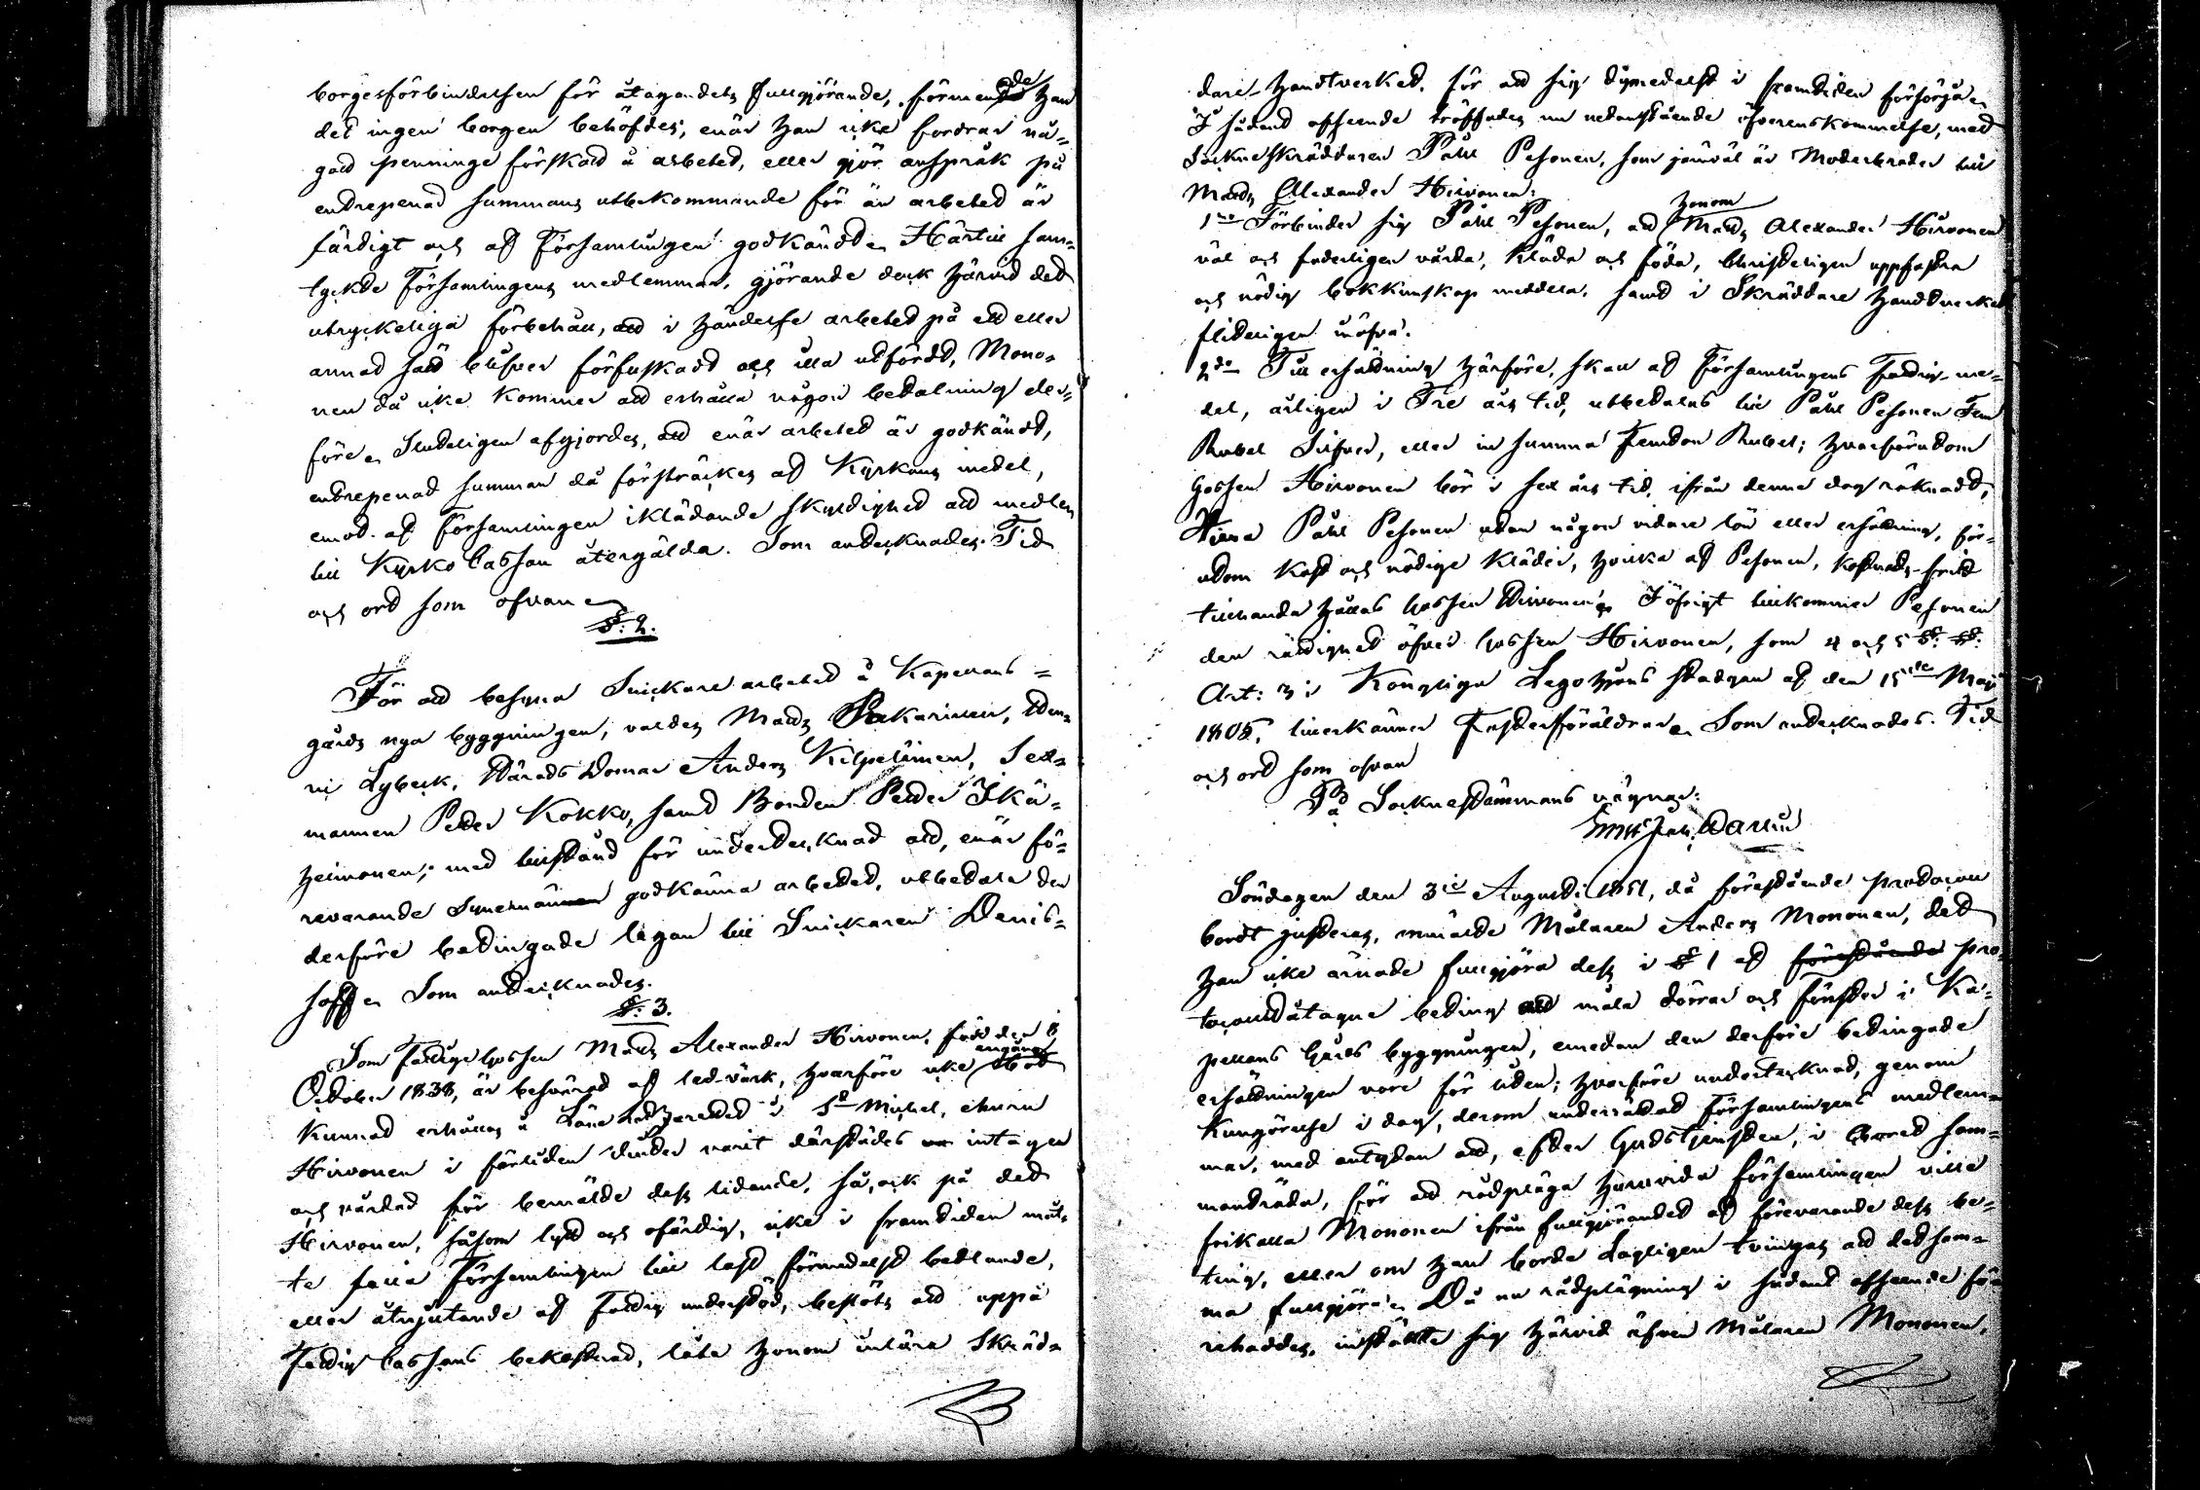 borgesförbindelsen för åtagandets fullgjörande, förmenade han
det ingen borgen behöfdes, enär han icke fordrar nå=
got penninge förskott å arbetet, eller gjör anspråk på
entrepenad summans utbekommande för än arbetet är
färdigt och af Församlingen godkändt. Härtill sam=
tyckte Församlingens medlemmar, gjörande dock härvid det
utryckeliga förbehåll, att i händelse arbetet på ett eller
annat sätt blifver förfuskadt och illa utfördt, Mono=
nen då icke kommer att erhålla någon betalning der=
före. Slutligen afgjordes, att enär arbetet är godkändt,
entrepenad summan då försträckes af Kyrkans medel,
emot af Församlingen iklädande skyldighet att medlen
till Kyrko Cassan återgälda. Som antecknades. Tid
och ord som ofvan
§. 2.
För att besyna Snickare arbetet å Kapellans=
gårds nya byggningen, valdes Matts Pekarinen, 
ni Lybeck, Härads Domar Anders Kilpeläinen, Sex=
mannen Peter Kokko, samt Bonden Petter Ikä=
heimonen; med tillstånd för undertecknad att, enär fö=
revarande Synemännen godkänna arbetet, utbetala den
derföre betingade legan till Snickaren Denis=
soff. Som antecknades.
§. 3.
Som Fattige Gossen Matts Alexander Hirvonen, född den 8
October 1838, är besvärad af led-värk, hvarföre icke någon bot
kunnat erhållas å Läne Lazarettet i S:t Michel, ehuru
Hirvonen i förliden vinter varit därstädes intagen
och vårdad för bemälde dess lidande, så, och på det
Hirvonen, såsom lytt och ofärdig, icke i framtiden måt=
te falla Församlingen till last förmedelst bettlande,
eller åtnjutande af Fattig understöd, beslöts att uppå
Fattig Cassans bekostnad, låta honom inlära Skräd=
dare-Handtverket, för att sig dymedelst i framtiden försörja.
I sådant afseende träffades nu nedanstående öfverenskommelse, med
Sockne skräddaren Påhl Pesonen, som jemväl är Moderbroder till
Matts Alexander Hirvonen:
1:mo Förbinder sig Påhl Pesonen, att honom Matts Alexander Hirvonen
väl och faderligen vårda, kläda och föda, christeligen uppfostra
och nödig bokkunskap meddela, samt i Skräddare Handtverket
fliteligen inöfva.
2:do Till ersättning härföre, skall af Församlingens Fattig-me=
del, årligen i Tre års tid, utbetalas till Påhl Pesonen Fem
Rubel Silfver, eller in summa Femton Rubel; hvarförutom
Gossen Hirvonen bör i sex års tid, ifrån denne dag räknadt,
tiena Påhl Pesonen utan någon vidare lön eller ersättning, för=
utom kost och nödige kläder, hvilka af Pesonen, kostnads-fritt
tillhanda hållas Gossen Hirvonen. I öfrigt tillkommer Pesonen
den rättighet öfver Gossen Hirvonen, som 4 och 5 §. §.
Art: 3 i Kongliga Legohjons stadgan af den 15:de Maji
1805, tillerkänner Fosterföräldrar. Som antecknades. Tid
och ord som ofvan
På Sockne stämmans vägnar:
Söndagen den 3:ie Augusti 1851, då förestående protocoll
bordt justeras, anmälde Målaren Anders Mononen, det
han icke ärnade fullgjöra dess i § 1 af förestående pro=
tocoll åtagne beting att måla dörrar och fönster i Ka=
pellans Gårds byggningen, emedan den derföre betingade
ersättningen vore för liten; hvarföre undertecknad, genom
kungörelse i dag, derom underrättat Församlingens medlem=
mar, med antydan att, efter Gudstjensten, i Sam=
manträda, för att rådpläga huruvida Församlingen ville
frikalla Mononen ifrån fullgjörandet af förevarande dess be=
ting, eller om han borde Lagligen tvingas att detsam=
ma fullgjöra. Då nu rådplägning i sådant afseende för=
rehades, inställte sig härvid äfven Målaren Mononen,